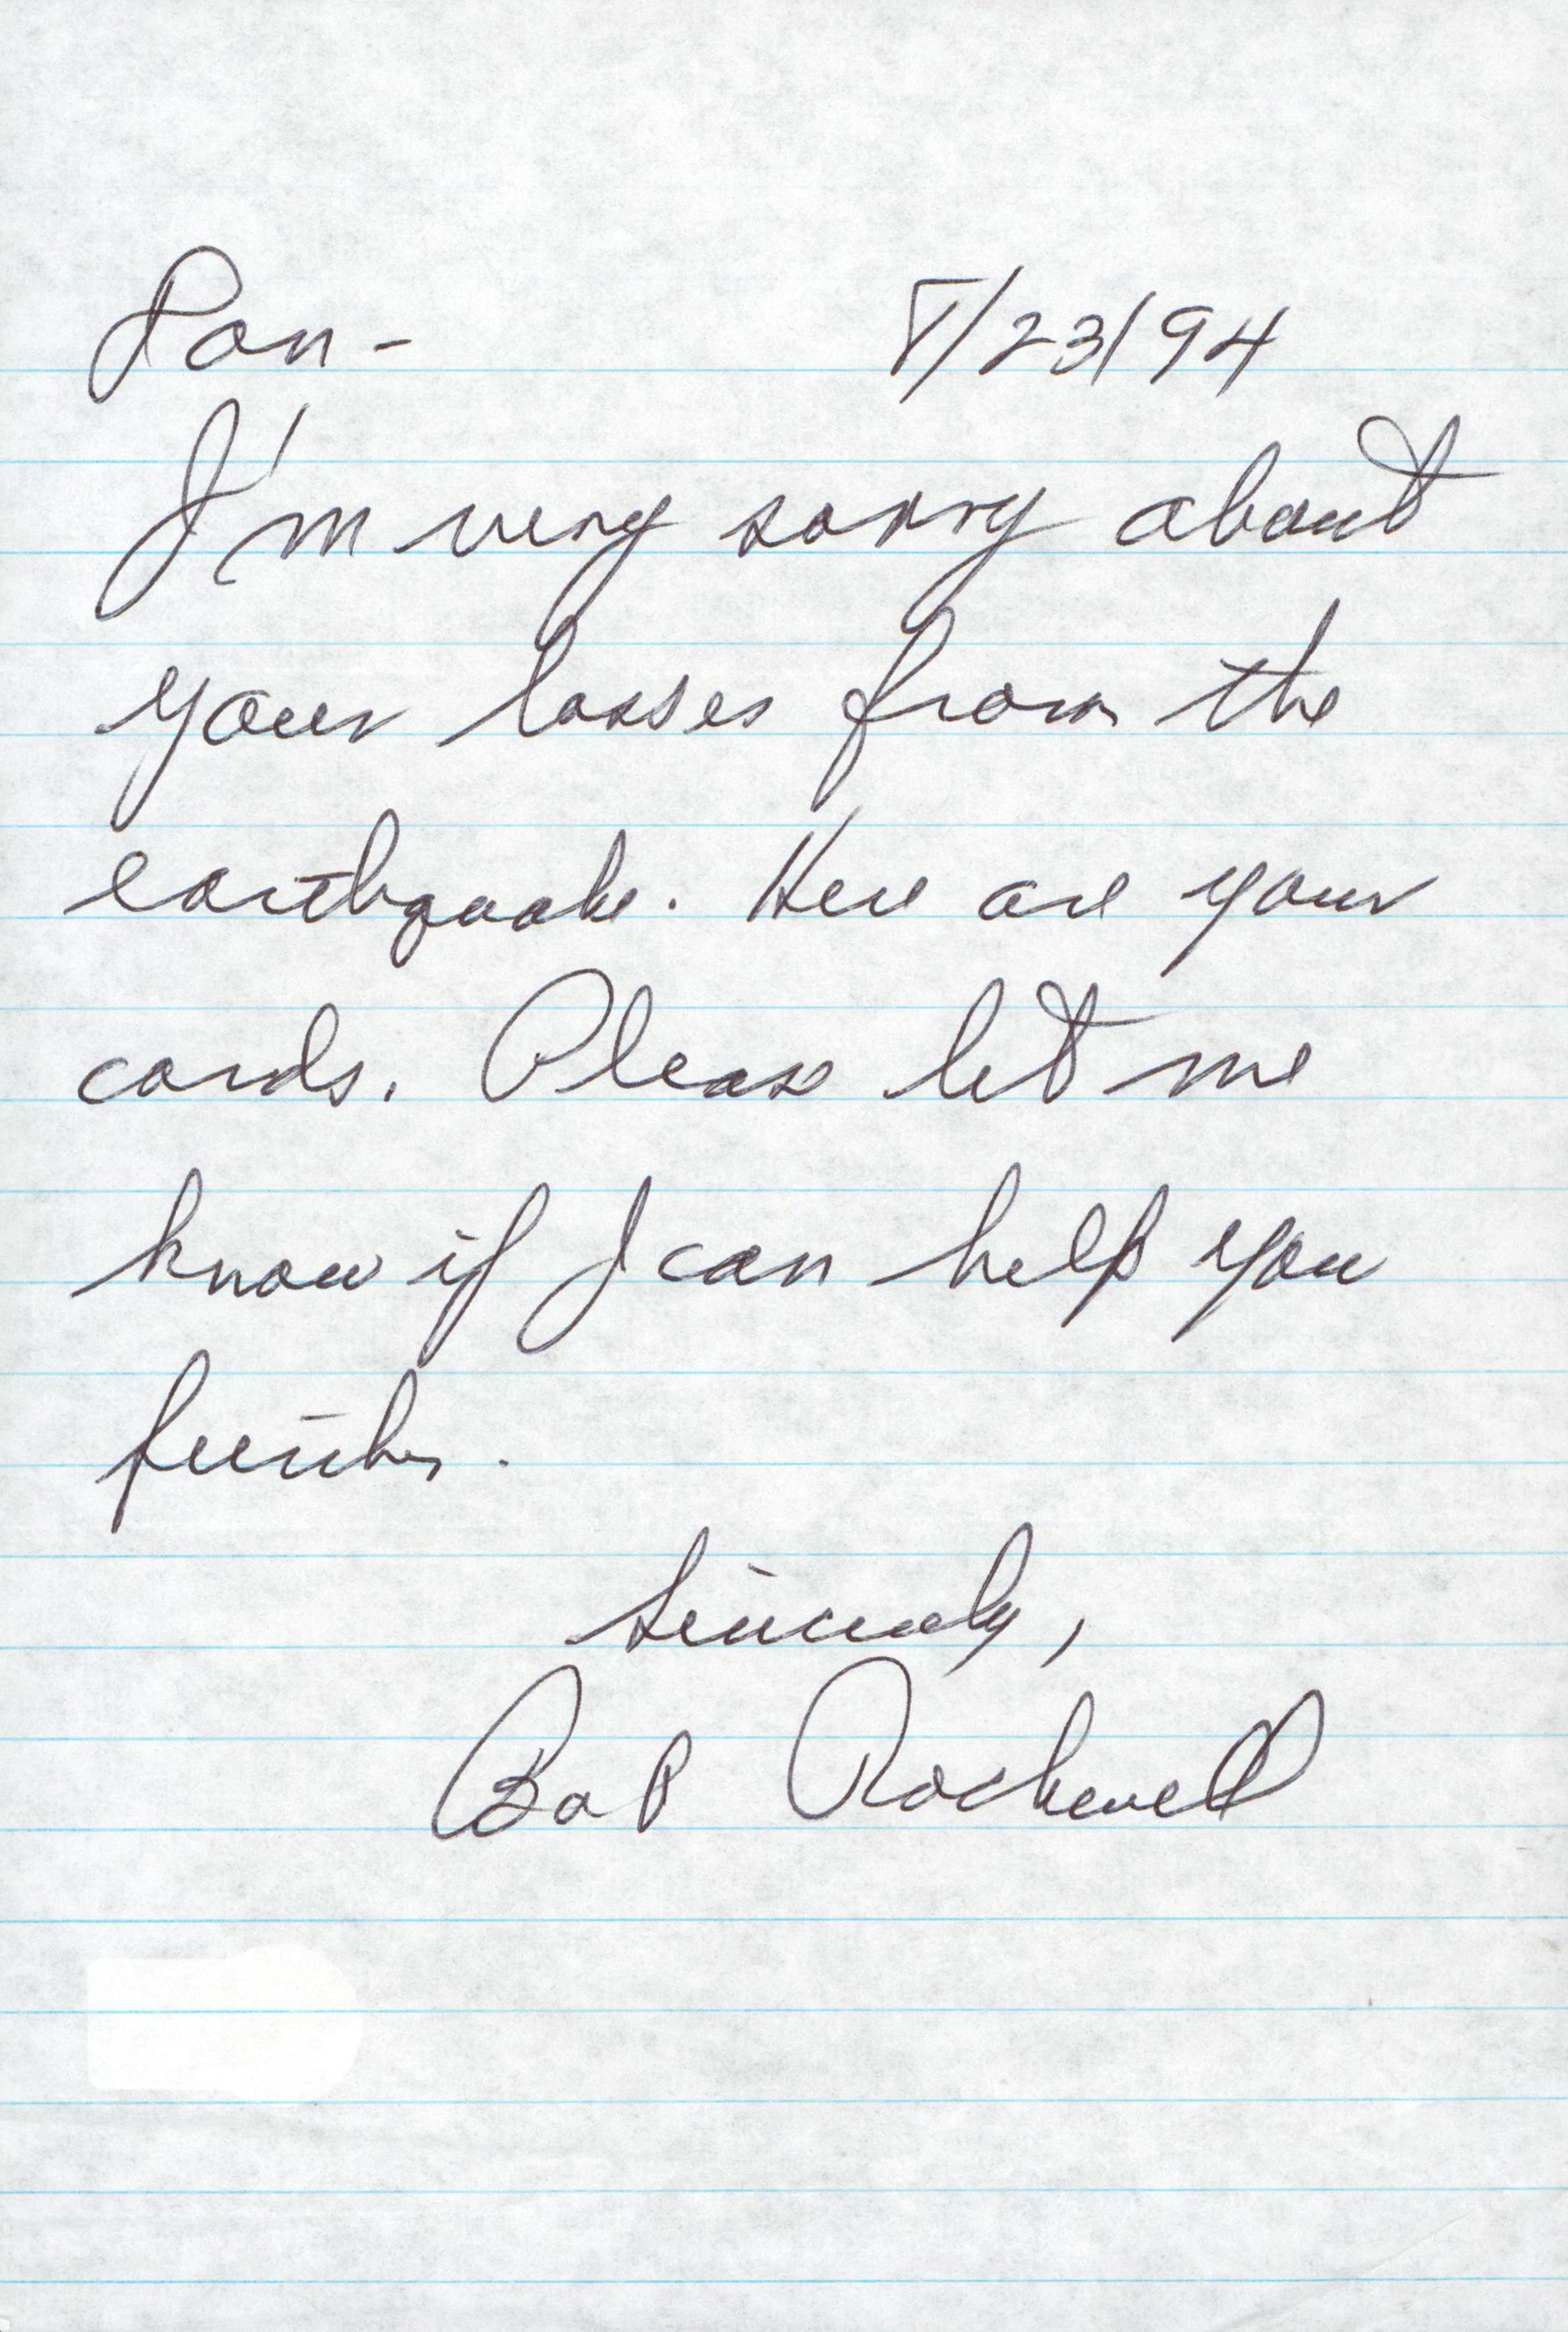 Ron- 8/23/94
I'm very sorry about
your losses from the
earthquake. Here are your
cards. Please let me
know if I can help you
further.
Sincerely,
Bob Rockwell